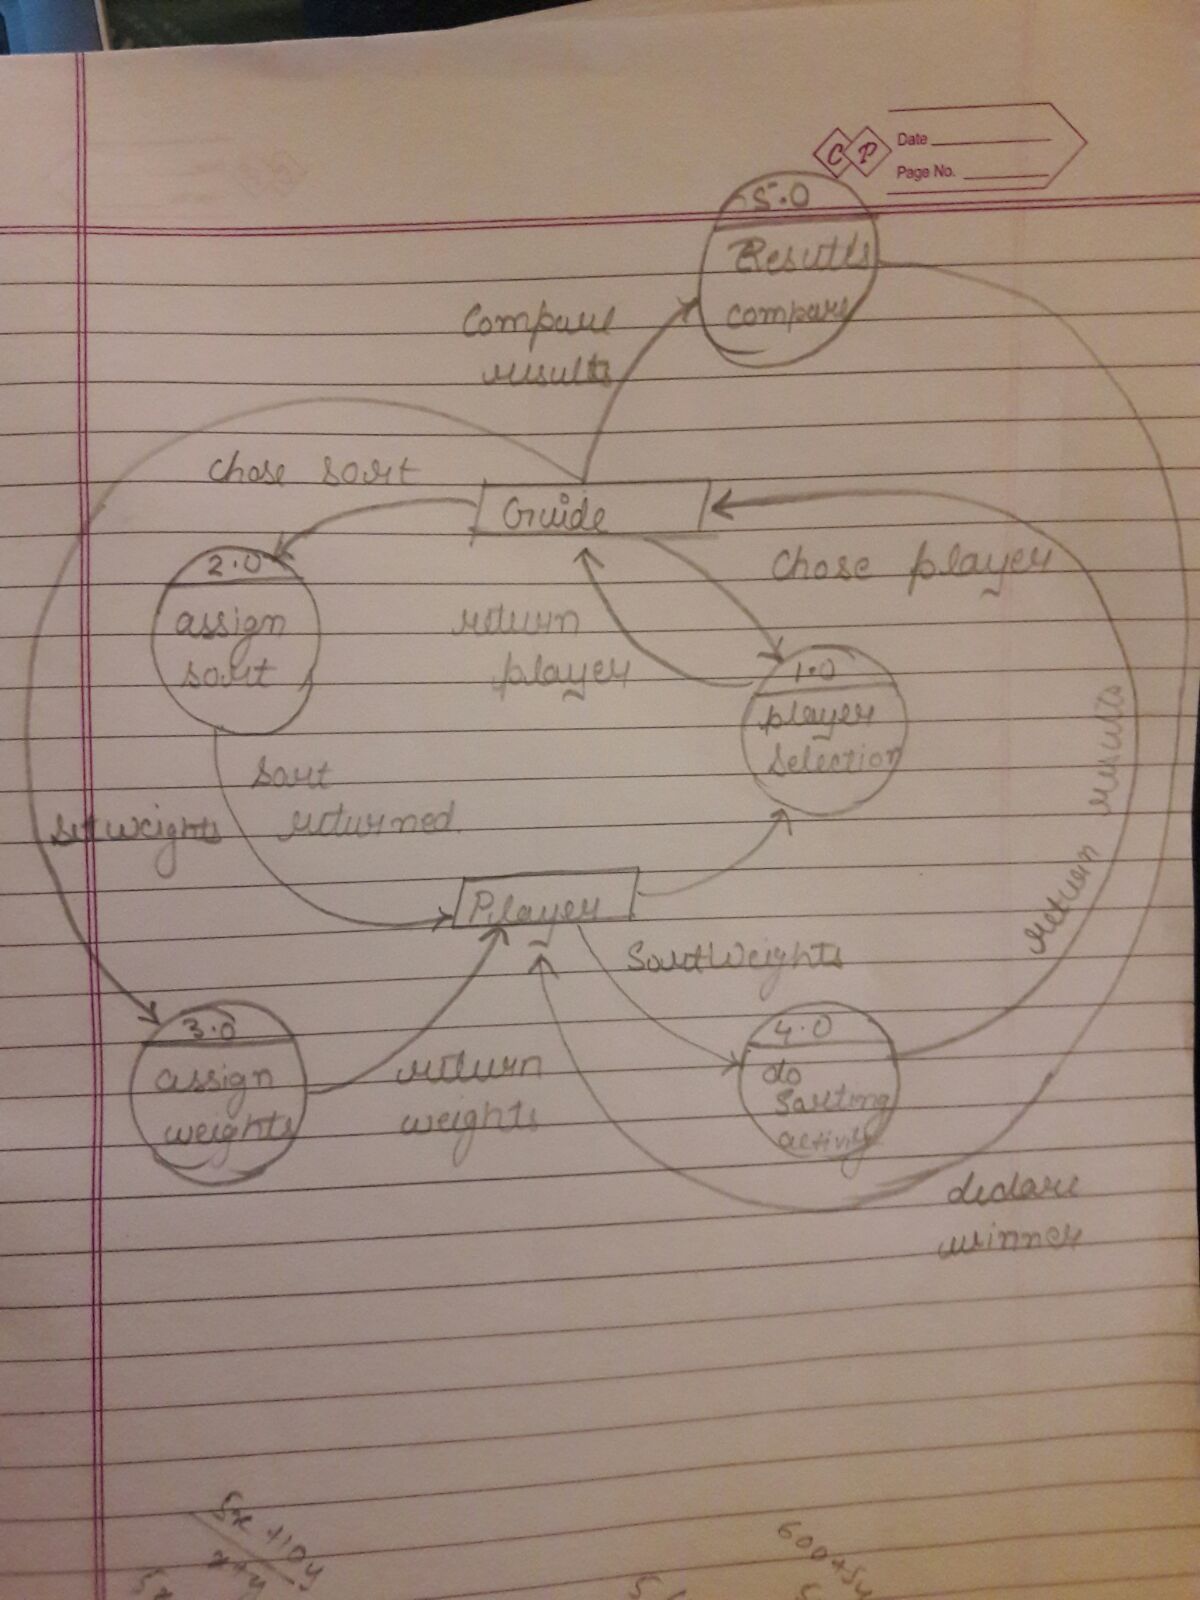 C P
Date
Page No.
5.0
Results
compare
Compare
results
Chose sort
Guide
Chose player
2.0
assign
sort
return
player
1.0
player
selection
Sort
returned
Set weights
return results
Player
Sort Weights
3.0
assign
weights
return
weights
4.0
do
Sorting
activity
declare
winner
5x + 10y
x+y
600+5y